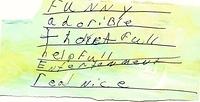 FUNNY
adorible
Thoretfull
helpfull
Entertainment
real nice